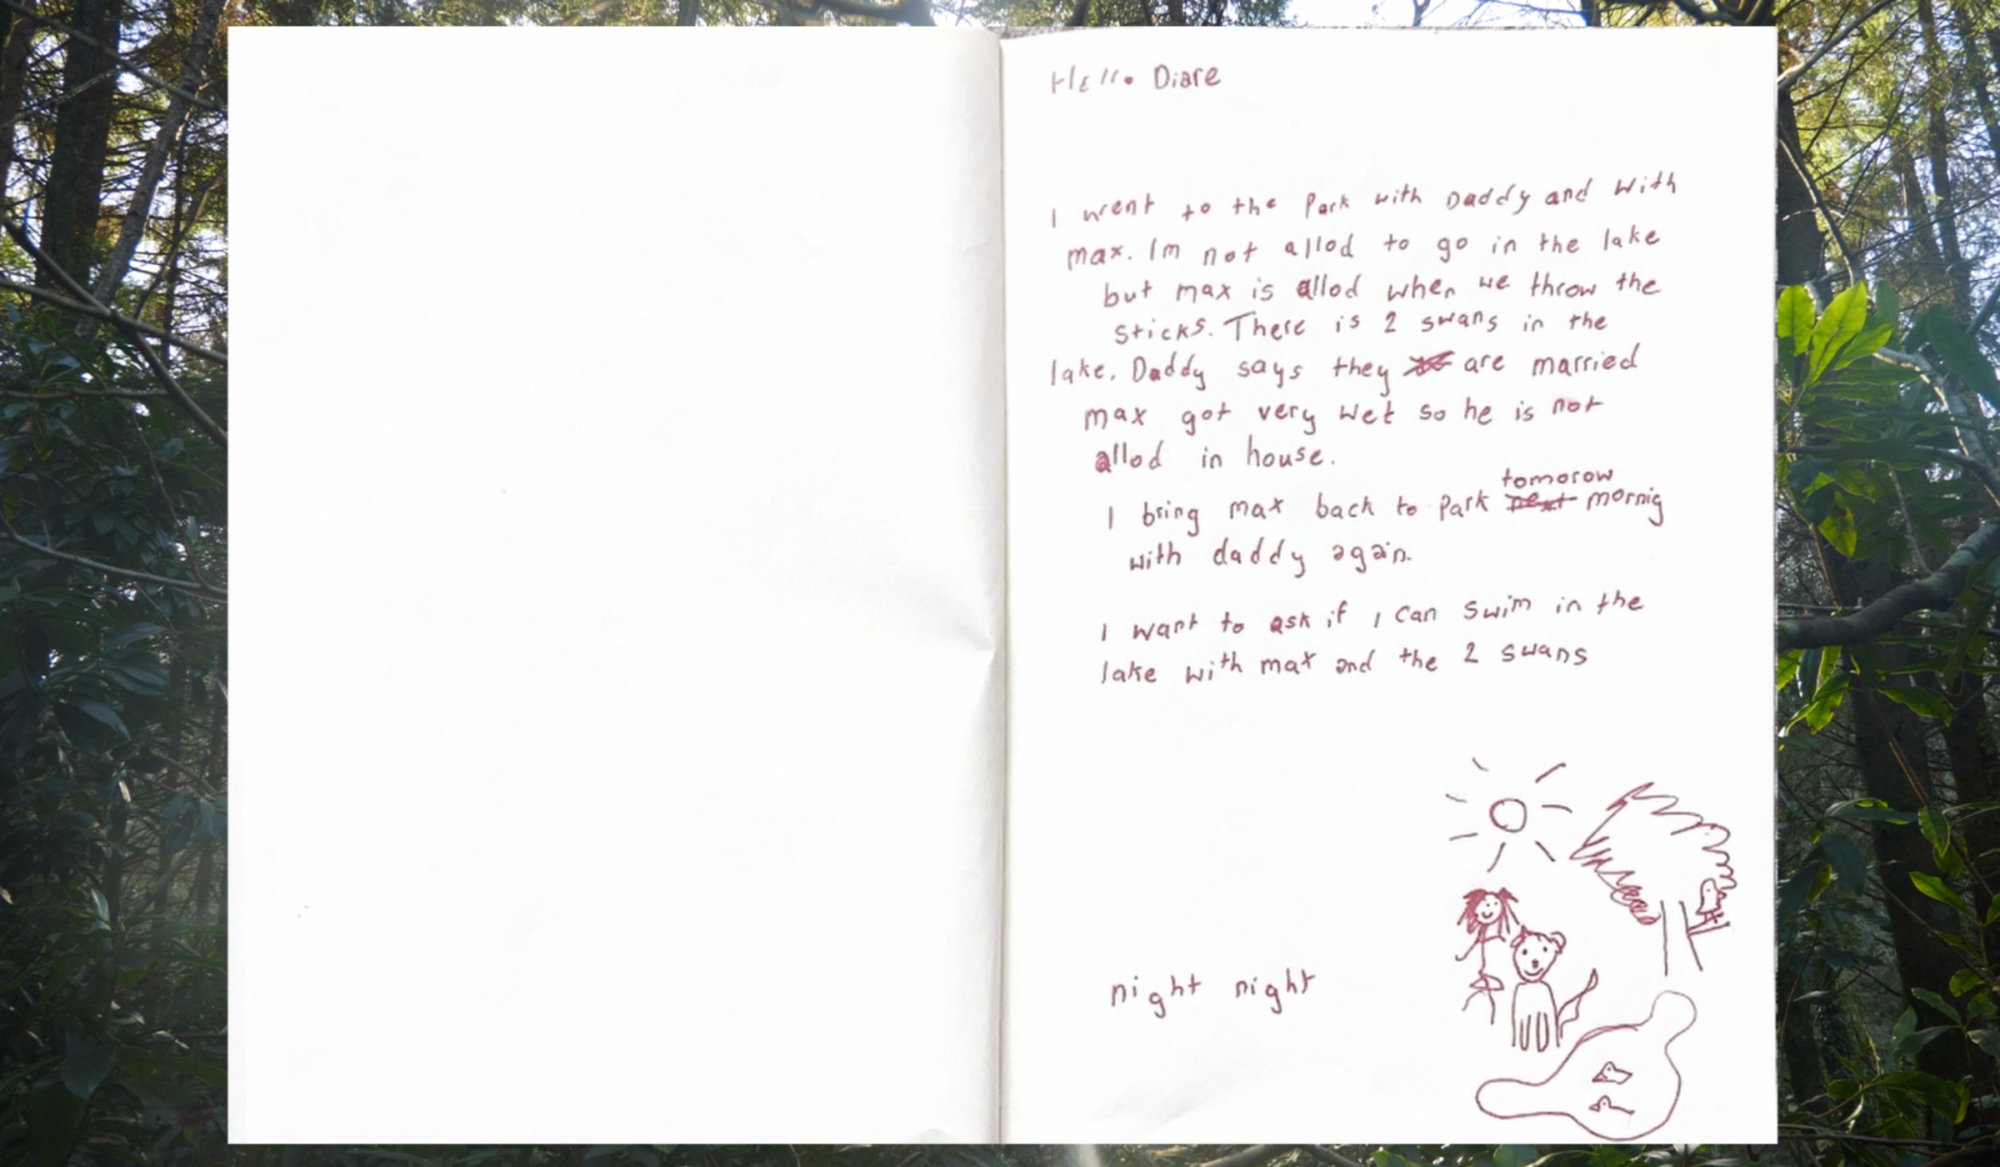 Hello Diare
I went to the Park with Daddy and with
max. Im not allod to go in the lake
but max is allod when we throw the
sticks. There is 2 swans in the
lake. Daddy says they are married
max got very wet so he is not
allod in house.
tomorow
I bring max back to Park next mornig
with daddy again.
I want to ask if I can swim in the
lake with max and the 2 swans
night night